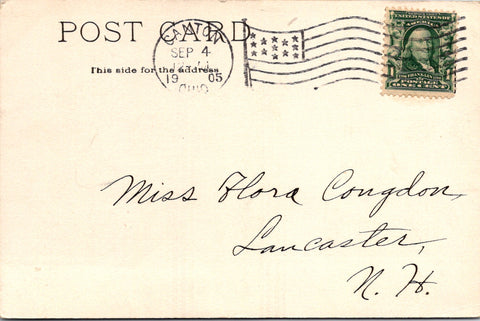 POST CARD
CANTON
SEP 4
19 05
OHIO
This side for the address
UNITED STATES OF
AMERICA
FRANKLIN
POSTAGE
ONE CENT
Miss Flora Congdon,
Lancaster,
N. H.